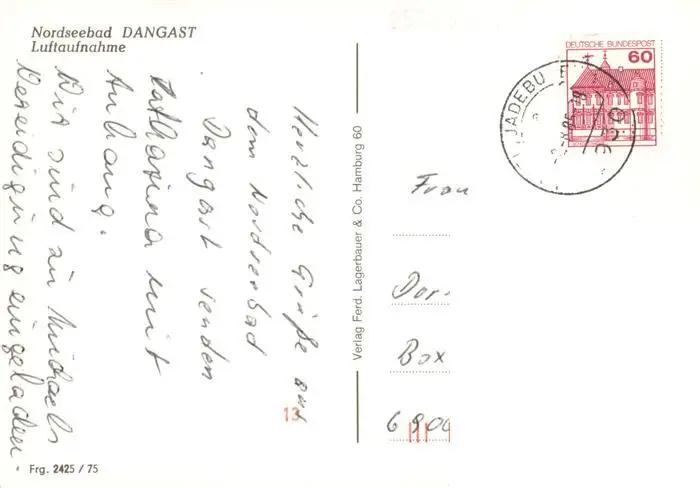 Nordseebad DANGAST
Luftaufnahme
Herzliche Grüße aus
dem Nordseebad
Dangast senden
Katharina mit
Anhang.
Wir sind zu Michaels
Vereidigung eingeladen.
Frg. 2425 / 75
Verlag Ferd. Lagerbauer & Co. Hamburg 60
DEUTSCHE BUNDESPOST
60
JADEBU
Frau
Dor
Box
6900
13